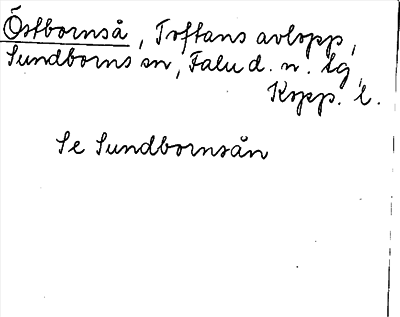 Östbornså, Toftans avlopp,
Sundborns sn, Falu d. n. lg,
Kopp. l.
Se Sundbornsån